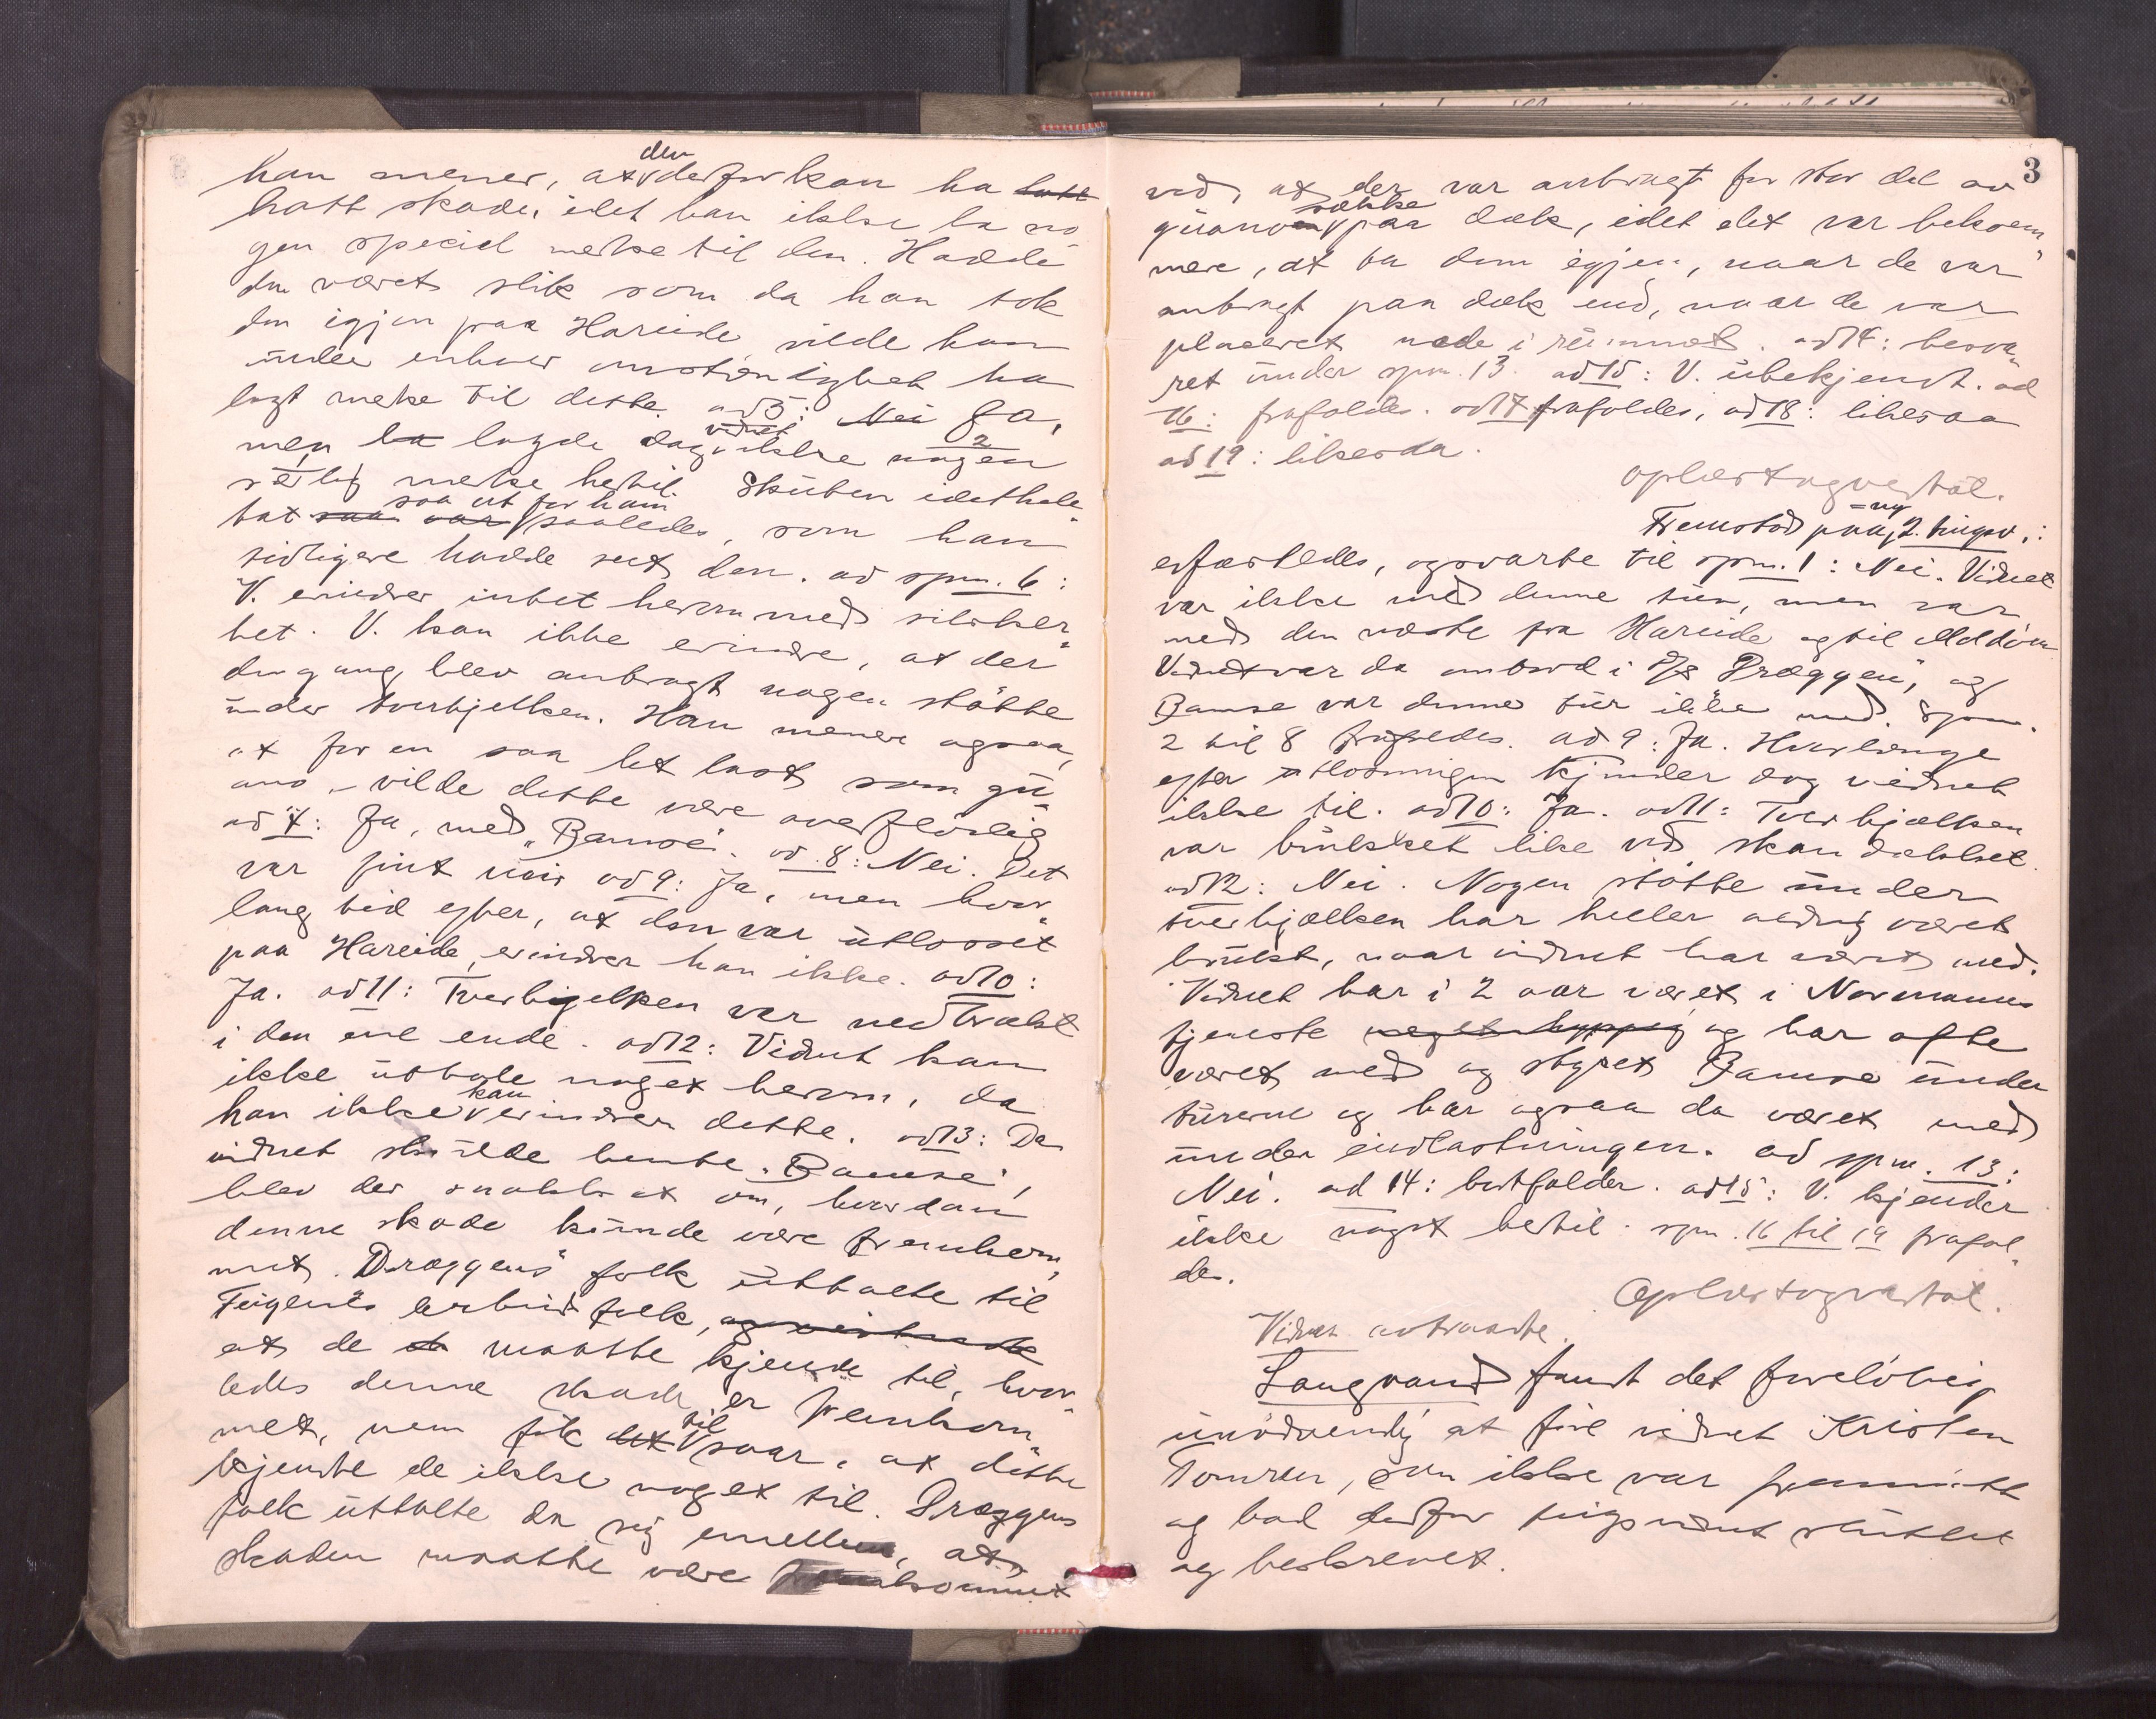 han mener, at den derfor kan ha hatt
hatt skade, idet han ikke la no
gen speciel merke til den. Hadde
den været slik som da han tok
den igjen paa Hareide vilde han
under enhver omstændighet ha
lagt merke til dette. ad 5: Nei Ja,
men la lagde dog vidnet ikke nogen
særlig merke hertil. Skuten idethele
tat saa var saa ut for ham saaledes, som han
tidligere hadde set den. ad spm. 6:
V. erindrer intet herom med sikker
het. V. kan ikke erindre, at der
dengang blev anbragt nogen støtte
under tverbjelken. Han mener ogsaa,
at for en saa let last som gu
ano - vilde dette være overflødig
ad 7: Ja, med "Bamse". ad 8: Nei. Det
var fint veir ad 9: Ja, men hvor
lang tid efter, at den var utlosset
paa Hareide, erindrer han ikke. ad 10:
Ja. ad 11: Tverbjelken var nedtrukket
i den ene ende. ad 12: Vidnet kan
ikke uttale noget herom, da
han ikke kan erindrer dette. ad 13: Da
vidnet skulde hente "Bamse",
blev der snakket om, hvordan
denne skade kunde være fremkom
met. Dræggens folk uttalte til
Teigenes arbeidsfolk, og
at de maatte kjende til, hvor
ledes denne skade er fremkom
met, men fik det til svar, at dette
kjendte de ikke noget til. Dræggens
folk uttalte da sig imellem, at
skaden maatte være fremkommet
3
ved, at der var anbragt for stor del av
guanoen sække paa dæk, idet det var bekvem
mere, at ta dem igjen, naar de var
anbragt paa dæk end, naar de var
placeret nede i rummet. ad 14: besva
ret under spm. 13. ad 15: V. ubekjendt. ad
16: frafaldes. ad 17 frafaldes, ad 18: likesaa
ad 19: likesaa.
Oplæst og vedtat.
Fremstod paany 2. tingsv.:
edfæstedes, og svarte til spm. 1: Nei. Vidnet
var ikke med denne tur, men var
med den næste fra Hareide og til Meldøen
Vidnet var da ombord i D/S "Dræggen", og
Bamse var denne tur ikke med. Spm.
2 til 8 frafaldes. ad 9: Ja. Hvorlænge
efter utlosningen kjender dog vidnet
ikke til. ad 10: Ja. ad 11: Tverbjælken
var bulket like ved skandækket.
ad 12: Nei. Nogen støtte under
tverbjælken har heller aldrig været
brukt, naar vidnet har været med.
Vidnet har i 2 aar været i Normanns
tjeneste meget hyppig og har ofte
været med og styret Bamse under
turerne og har ogsaa da været med
under indlastningen. ad spm. 13:
Nei. ad 14: bortfalder. ad 15: V. kjender
ikke noget hertil. spm. 16 til 19 frafal
des.
Oplæst og vedtat.
Vidnet aftraadte.
Langvand fandt det foreløbig
unødvendig at føre vidnet Kristen
Tomren, som ikke var fremmøtt
og bad derfor tingsvidnet sluttet
og beskrevet.